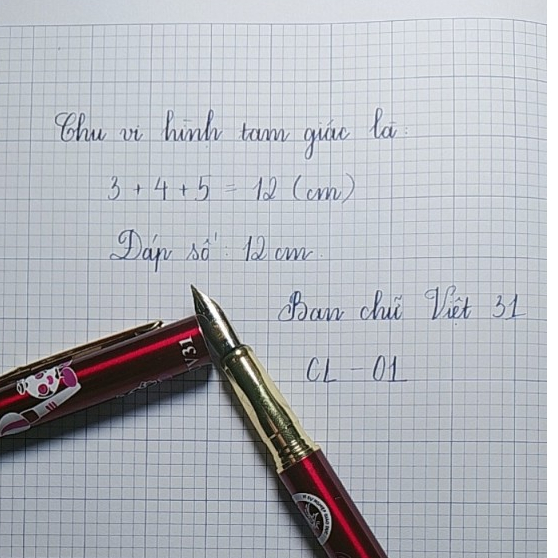 Chu vi hình tam giác là:
3 + 4 + 5 = 12 (cm)
Đáp số: 12 cm.
Ban chữ Việt 31
CL - 01
V31